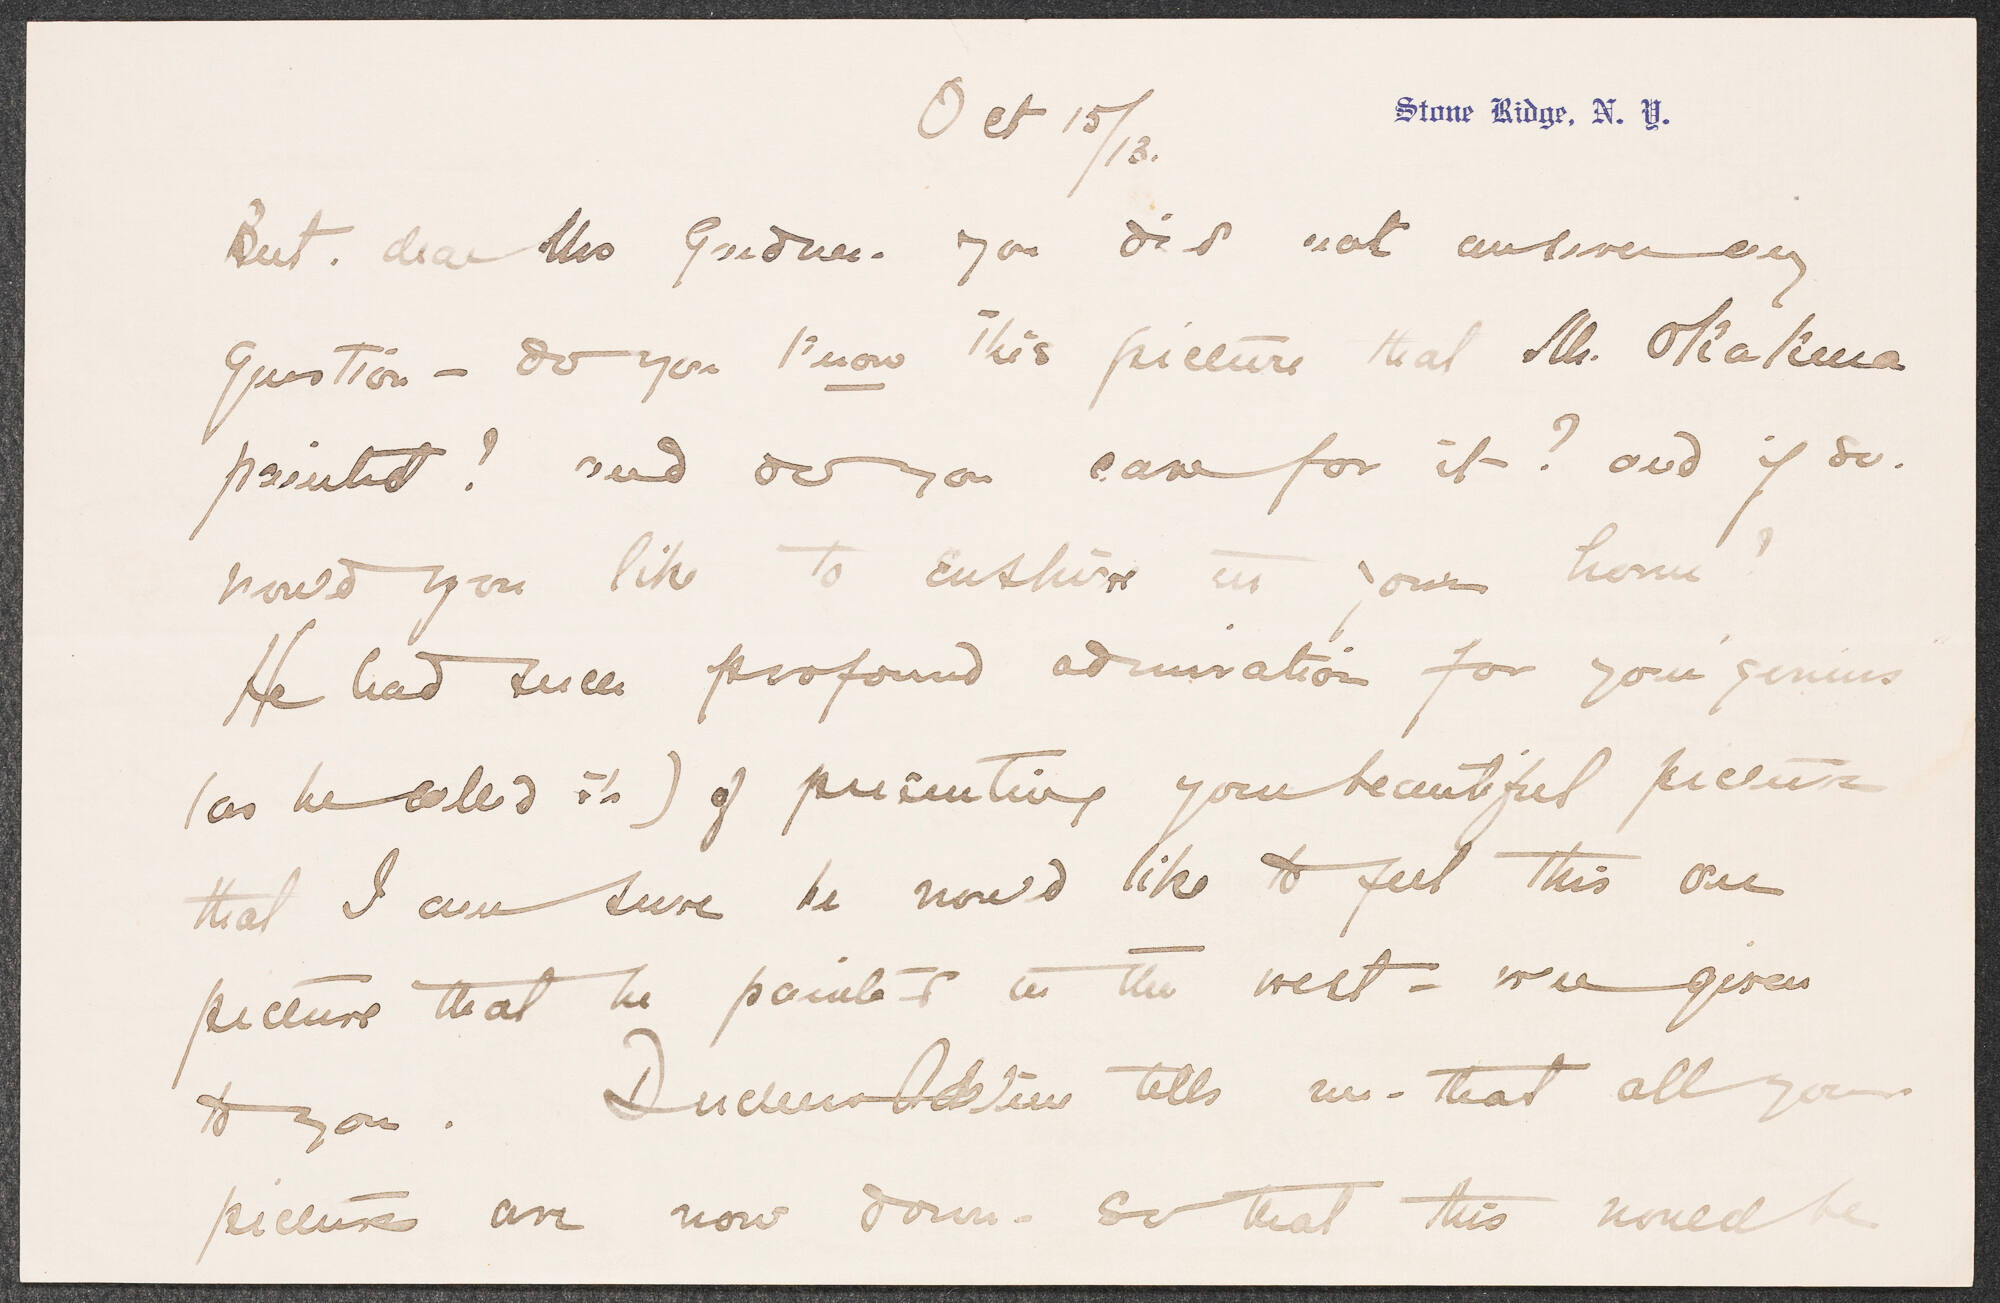 Oct 15/13.
Stone Ridge, N. Y.
But. dear Mrs Gardner. you did not answer my
question - do you know this picture that Mr. Okakura
painted? and do you care for it? and if so.
would you like to enshrine in your home?
He had such profound admiration for your "genius"
(as he called it) of presenting your beautiful pictures
that I am sure he would like to feel this one
picture that he painted in the west - was given
to you. tells me - that all your
pictures are now down - so that this would be